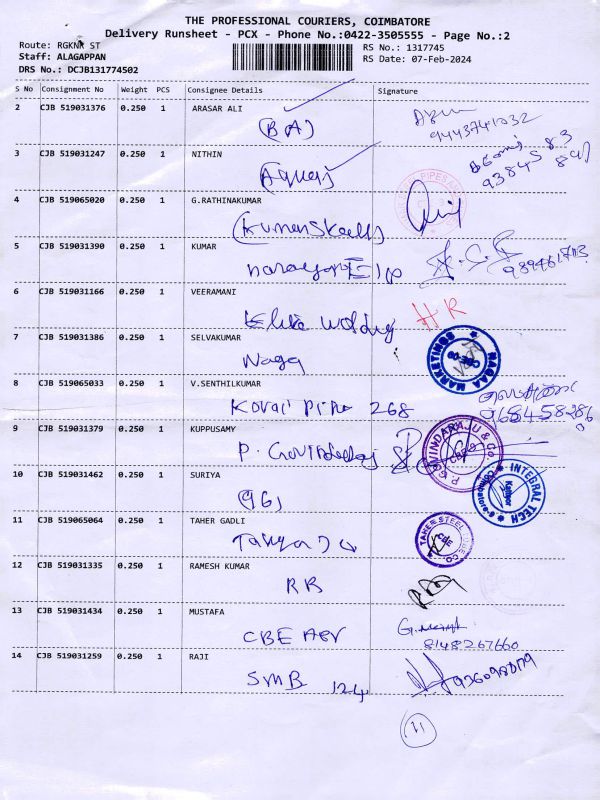 THE PROFESSIONAL COURIERS, COIMBATORE
Delivery Runsheet - PCX - Phone No.:0422-3505555 - Page No.:2
Route: RGKNR ST
RS No.: 1317745
Staff: ALAGAPPAN
RS Date: 07-Feb-2024
DRS No.: DCJB131774502
S No Consignment No Weight PCS Consignee Details Signature
2 CJB 519031376 0.250 1 ARASAR ALI
(BA)
9443741032
3 CJB 519031247 0.250 1 NITHIN
4 CJB 519065020 0.250 1 G.RATHINAKUMAR
5 CJB 519031390 0.250 1 KUMAR
6 CJB 519031166 0.250 1 VEERAMANI
HR
7 CJB 519031386 0.250 1 SELVAKUMAR
Naga
NAGAA MARKETINGS
8 CJB 519065033 0.250 1 V.SENTHILKUMAR
Kovai Pipe 268
9 CJB 519031379 0.250 1 KUPPUSAMY
P. Govindaraj
P. GOVINDARAJU & CO
10 CJB 519031462 0.250 1 SURIYA
INTEGRAL TECH
11 CJB 519065064 0.250 1 TAHER GADLI
CBE
12 CJB 519031335 0.250 1 RAMESH KUMAR
RR
13 CJB 519031434 0.250 1 MUSTAFA
8148267660
14 CJB 519031259 0.250 1 RAJI
SMB 124
11